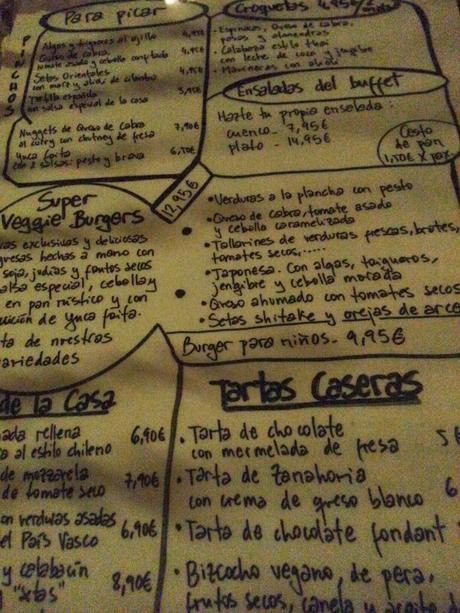 Para picar
PINCHOS
Algas y trigueros al ajillo 4,95€
Queso de cabra,
tomate asado y cebolla confitada 4,95€
Setas Orientales
con maiz y alioli de cilantro 4,90€
Tortilla española
con salsa especial de la casa 3,95€
Nuggets de Queso de Cabra 7,90€
al curry con chutney de fresa
Yuca frita 6,70€
con 2 salsas: pesto y brava
Croquetas 4,95€
Espinacas, Queso de cabra,
pasas y almendras
Calabaza estilo thai
con leche de coco y jengibre
con alioli
Ensaladas del buffet
Hazte tu propia enselada:
cuenco - 7,95€
plato - 14,95€
Cesto
de pan
1,50€ x pax
Super
Veggie Burgers
12,95€
exclusivas y deliciosas
hechas a mano con
soja, judias y frutos secos
salsa especial, cebolla y
en pan rústico y con
de yuca frita.
de nuestras
variedades
• Verduras a la plancha con pesto
• Queso de cabra, tomate asado
y cebolla caramelizada
• Tallarines de verduras frescas, brotes,
tomates secos,.....
• Japonesa. Con algas, trigueros,
jengibre y cebolla morada
• Queso ahumado con tomates secos
• Setas shitake y orejas de arce
Burger para niños - 9,95€
de la Casa
rellena 6,90€
al estilo chileno
de mozzarela 7,90€
de tomate seco
con verduras asadas
el País Vasco 6,90€
y calabacín
"xtas" 8,90€
Tartas Caseras
• Tarta de chocolate
con mermelada de fresa 5
• Tarta de Zanahoria
con crema de queso blanco 6
• Tarta de chocolate fondant
• Bizcocho vegano, de pera,
frutos secos, canela y